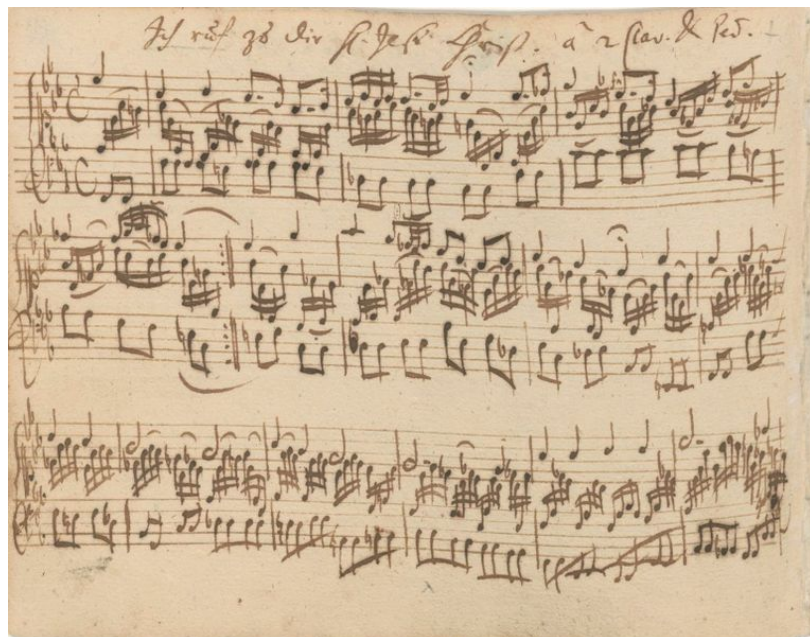 Ich ruf zu dir H. Jesu Christ. à 2 Clav. & Ped.